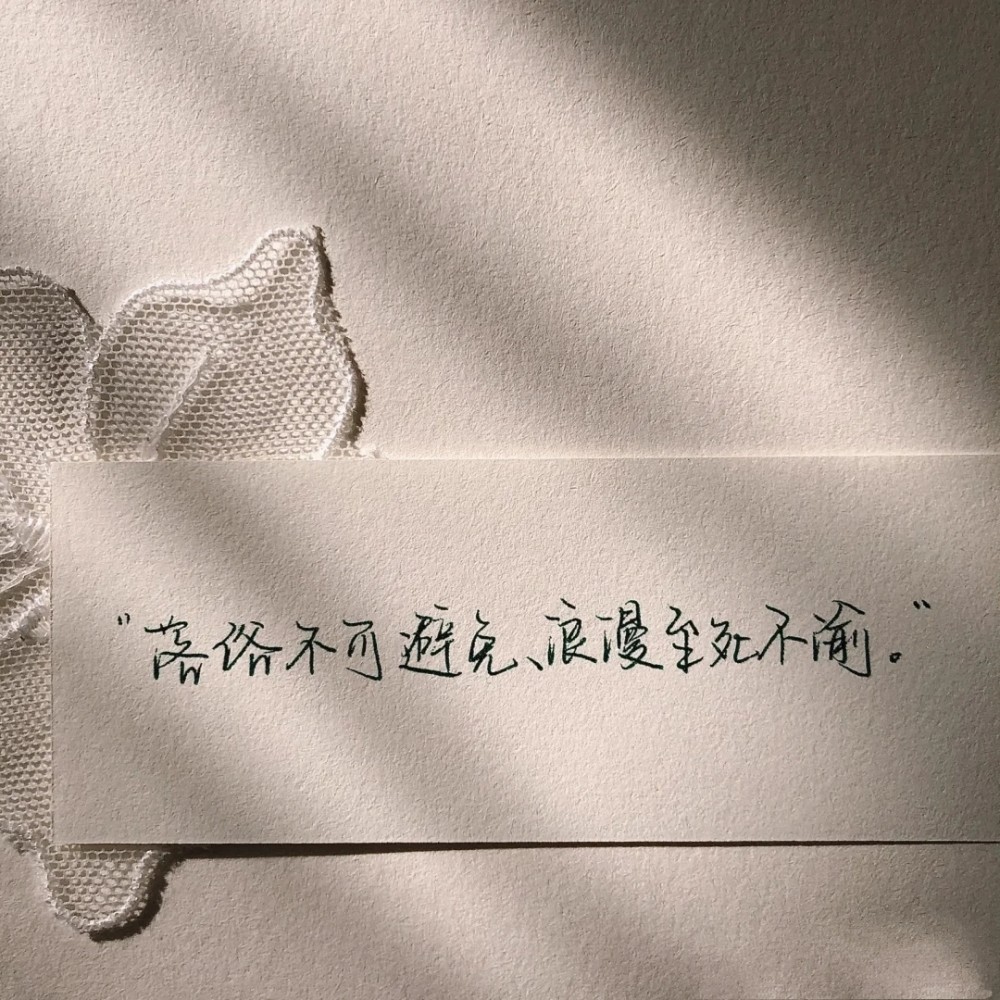 "落俗不可避免、浪漫至死不渝。"